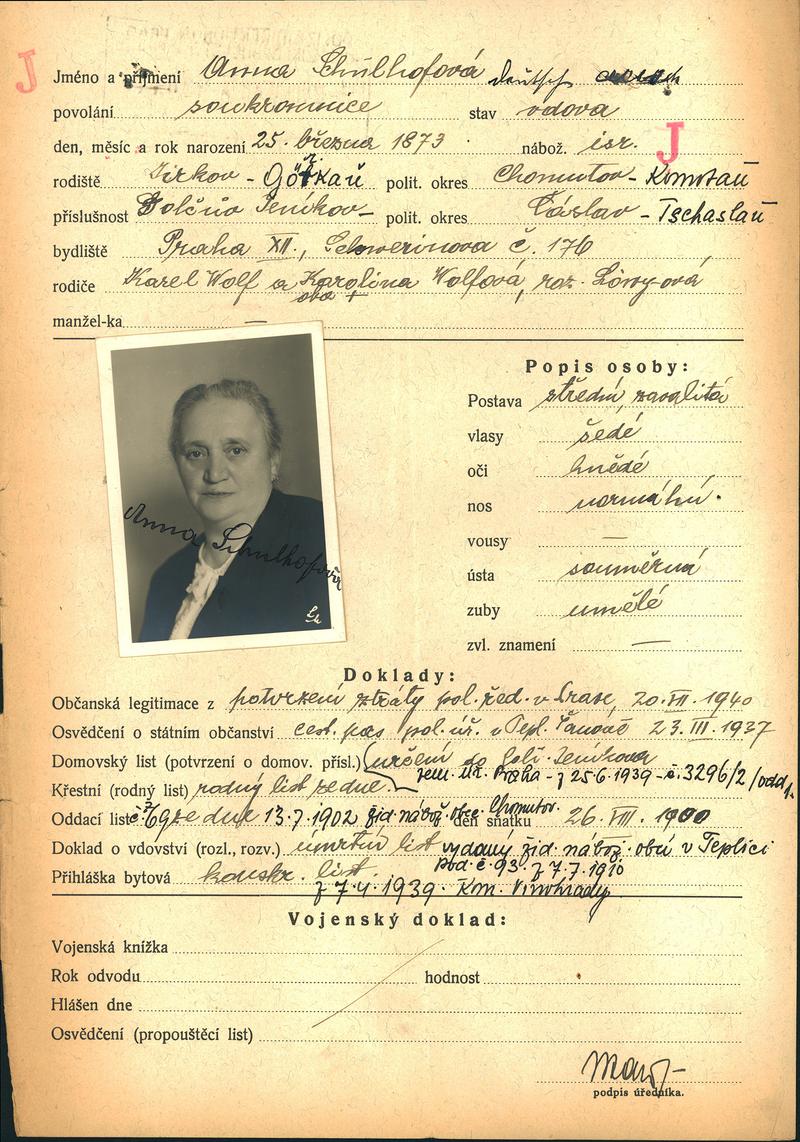 J
Jméno a příjmení Anna Schulhofová deutsch
povolání soukromnice stav vdova
den, měsíc a rok narození 25. března 1873 nábož. isr. J
rodiště Jirkov - Görkau polit. okres Chomutov - Komotau
příslušnost Golčův Jeníkov - polit. okres Čáslav - Tschaslau
bydliště Praha XII., Schwerinova č. 176
rodiče Karel Wolf a Karolina Wolfová, roz. Löwy-ová
oba +
manžel-ka —
Popis osoby:
Postava střední, zavalitá
vlasy šedé
oči hnědé
nos normální.
vousy —
ústa souměrná
zuby umělé
zvl. znamení —
Anna Schulhofová
Doklady:
Občanská legitimace z potvrzení ztráty pol. řed. v Praze, 20. VII. 1940
Osvědčení o státním občanství cest. pas pol. úř. v Tepl. Šanově 23. III. 1937
Domovský list (potvrzení o domov. přísl.) (určení do Golč. Jeníkova
zem. úř. Praha - z 25.6.1939 - č. 3296/2/odd 1.
Křestní (rodný list) rodný list ze dne
Oddací list ze dne 13.7.1902 žid. nábož. obce Chomutov. den sňatku 26. VIII. 1900
Doklad o vdovství (rozl., rozv.) úmrtní list vydaný žid. nábož. obcí v Teplici
pod č. 93. z 7.7.1910
Přihláška bytová konskr. list.
z 7.4.1939. Km. Vinohrady
Vojenský doklad:
Vojenská knížka
Rok odvodu hodnost
Hlášen dne
Osvědčení (propouštěcí list)
podpis úředníka.